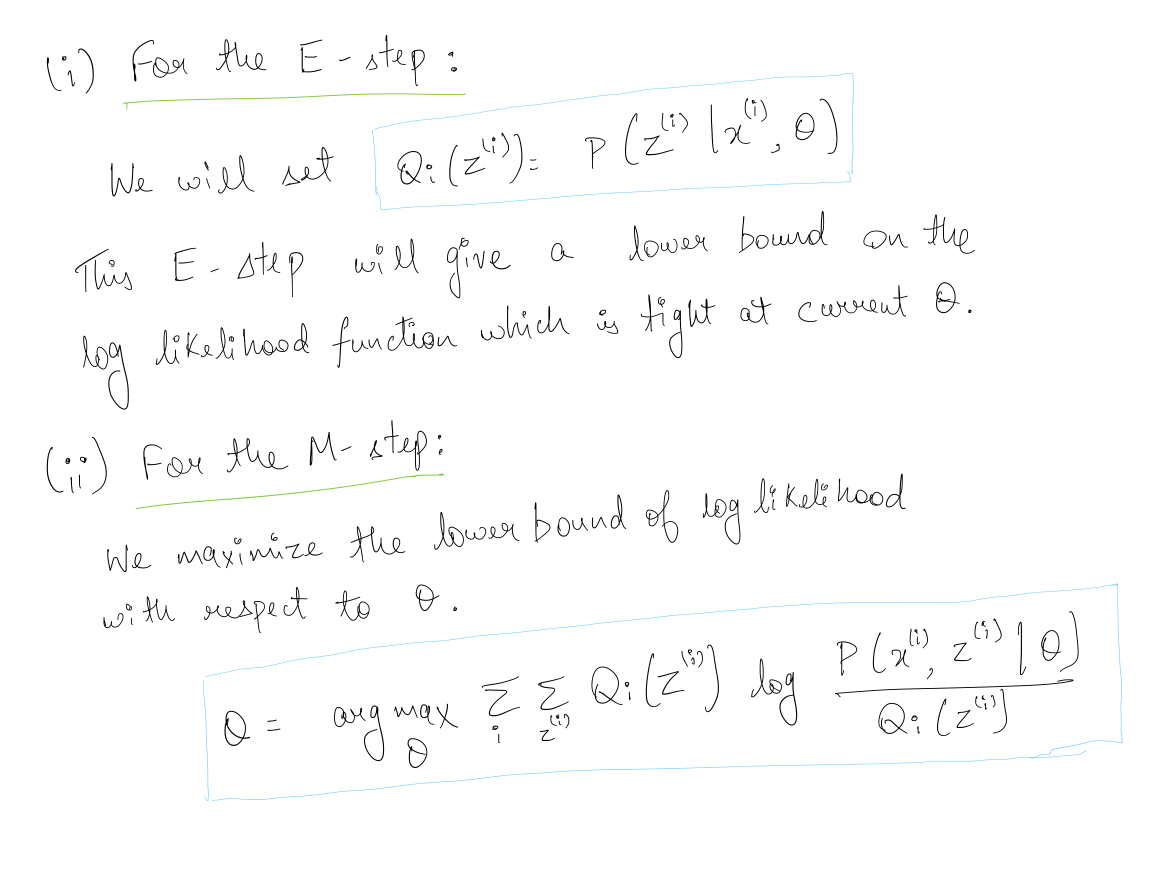 (i) For the E-step:
We will set Qi(z^(i)) = P(z^(i) | x^(i), θ)
This E-step will give a lower bound on the
log likelihood function which is tight at current θ.
(ii) For the M-step:
We maximize the lower bound of log likelihood
with respect to θ.
θ = arg max_θ Σ_i Σ_z^(i) Qi(z^(i)) log P(x^(i), z^(i) | θ) / Qi(z^(i))